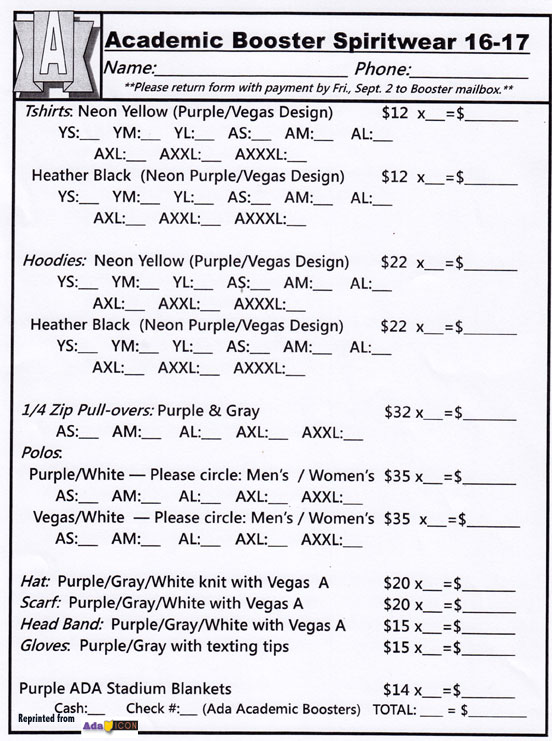 A
Academic Booster Spiritwear 16-17
Name:____________________ Phone:______________
**Please return form with payment by Fri., Sept. 2 to Booster mailbox.**
Tshirts: Neon Yellow (Purple/Vegas Design) $12 x__=$______
YS:__ YM:__ YL:__ AS:__ AM:__ AL:__
AXL:__ AXXL:__ AXXXL:__
Heather Black (Neon Purple/Vegas Design) $12 x__=$______
YS:__ YM:__ YL:__ AS:__ AM:__ AL:__
AXL:__ AXXL:__ AXXXL:__
Hoodies: Neon Yellow (Purple/Vegas Design) $22 x__=$______
YS:__ YM:__ YL:__ AS:__ AM:__ AL:__
AXL:__ AXXL:__ AXXXL:__
Heather Black (Neon Purple/Vegas Design) $22 x__=$______
YS:__ YM:__ YL:__ AS:__ AM:__ AL:__
AXL:__ AXXL:__ AXXXL:__
1/4 Zip Pull-overs: Purple & Gray $32 x__=$______
AS:__ AM:__ AL:__ AXL:__ AXXL:__
Polos:
Purple/White — Please circle: Men's / Women's $35 x__=$______
AS:__ AM:__ AL:__ AXL:__ AXXL:__
Vegas/White — Please circle: Men's / Women's $35 x__=$______
AS:__ AM:__ AL:__ AXL:__ AXXL:__
Hat: Purple/Gray/White knit with Vegas A $20 x__=$______
Scarf: Purple/Gray/White with Vegas A $20 x__=$______
Head Band: Purple/Gray/White with Vegas A $15 x__=$______
Gloves: Purple/Gray with texting tips $15 x__=$______
Purple ADA Stadium Blankets $14 x__=$______
Cash:__ Check #:__ (Ada Academic Boosters) TOTAL: ___ = $_______
Reprinted from Ada ICON